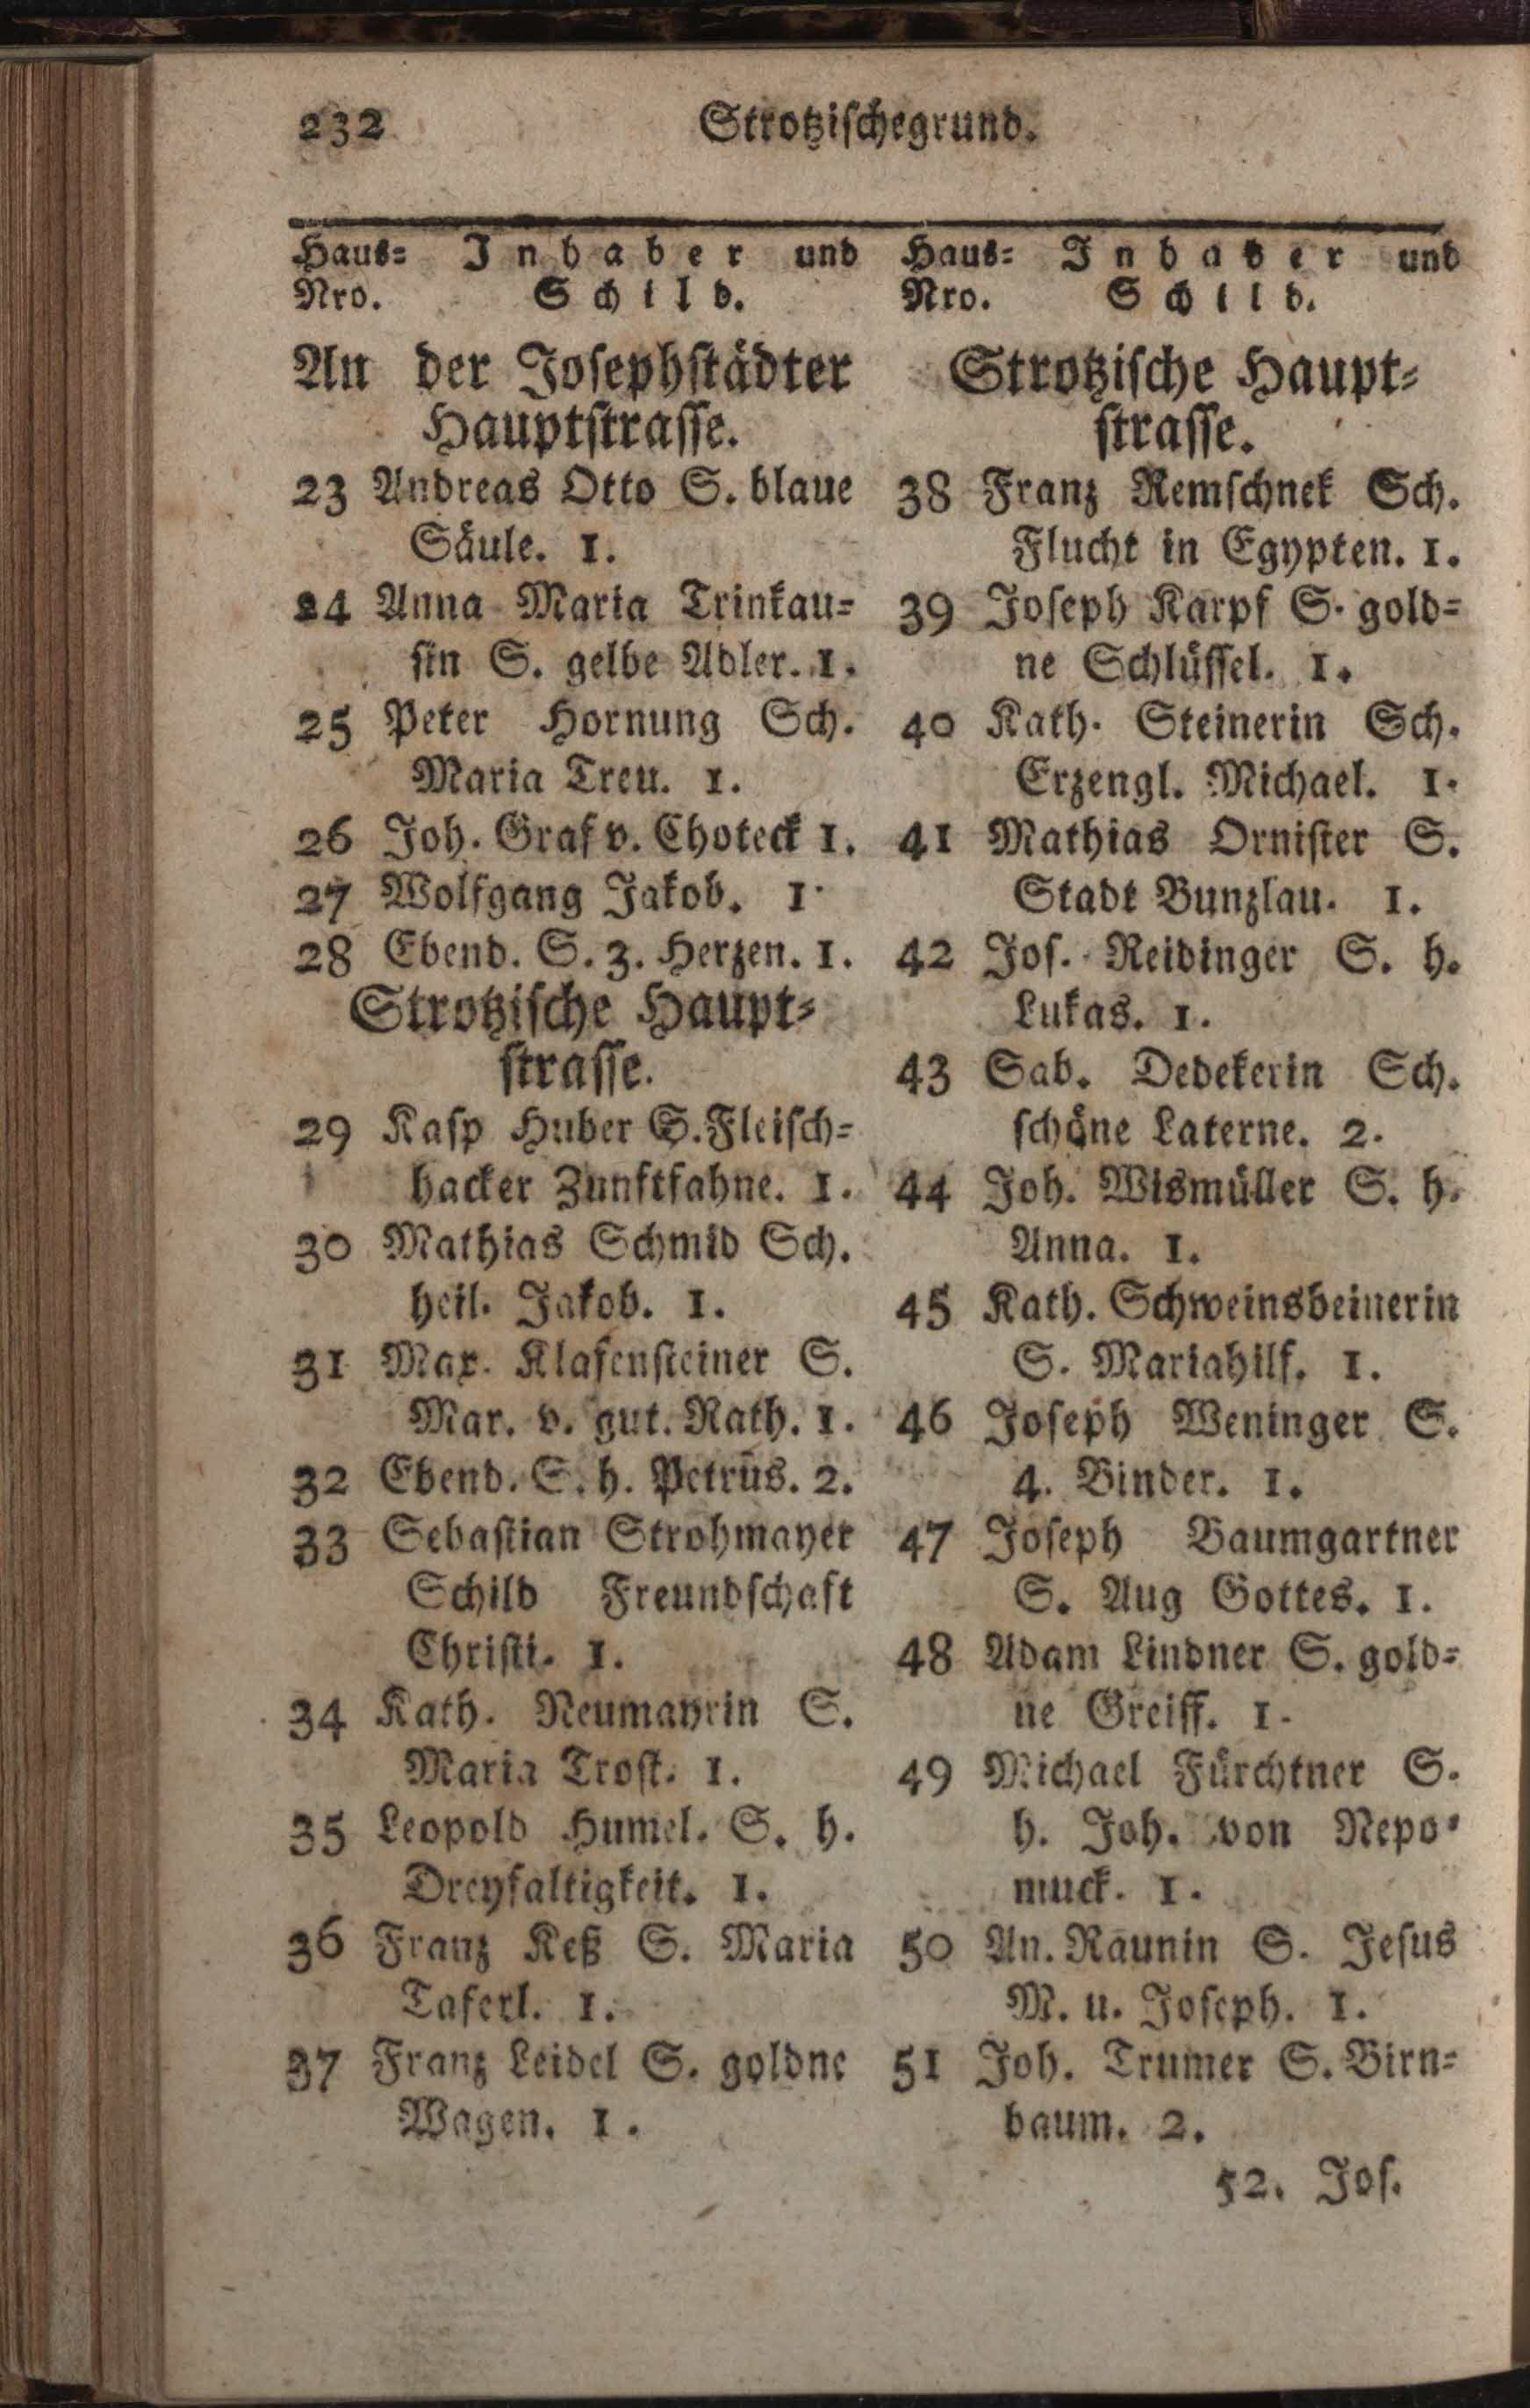 232 Strotzischegrund.
Haus= Inhaber und
Nro. Schild.
An der Josephstädter
Hauptstrasse.
23 Andreas Otto S. blaue
Säule. 1.
24 Anna Maria Trinkau=
sin S. gelbe Adler. 1.
25 Peter Hornung Sch.
Maria Treu. 1.
26 Joh. Graf v. Choteck 1.
27 Wolfgang Jakob. 1.
28 Ebend. S. 3. Herzen. 1.
Strotzische Haupt=
strasse.
29 Kasp Huber S. Fleisch=
hacker Zunftfahne. 1.
30 Mathias Schmid Sch.
heil. Jakob. 1.
31 Max. Klafensteiner S.
Mar. v. gut. Rath. 1.
32 Ebend. S. h. Petrus. 2.
33 Sebastian Strohmayer
Schild Freundschaft
Christi. 1.
34 Kath. Neumayrin S.
Maria Trost. 1.
35 Leopold Humel. S. h.
Dreyfaltigkeit. 1.
36 Franz Keß S. Maria
Taferl. 1.
37 Franz Leidel S. goldne
Wagen. 1.
Haus= Inhaber und
Nro. Schild.
Strotzische Haupt=
strasse.
38 Franz Remschnek Sch.
Flucht in Egypten. 1.
39 Joseph Karpf S. gold=
ne Schlüssel. 1.
40 Kath. Steinerin Sch.
Erzengl. Michael. 1.
41 Mathias Ornister S.
Stadt Bunzlau. 1.
42 Jos. Reidinger S. h.
Lukas. 1.
43 Sab. Dedekerin Sch.
schöne Laterne. 2.
44 Joh. Wismüller S. h.
Anna. 1.
45 Kath. Schweinsbeinerin
S. Mariahilf. 1.
46 Joseph Weninger S.
4. Binder. 1.
47 Joseph Baumgartner
S. Aug Gottes. 1.
48 Adam Lindner S. gold=
ne Greiff. 1.
49 Michael Fürchtner S.
h. Joh. von Nepo=
muck. 1.
50 An. Raunin S. Jesus
M. u. Joseph. 1.
51 Joh. Trumer S. Birn=
baum. 2.
52. Jos.